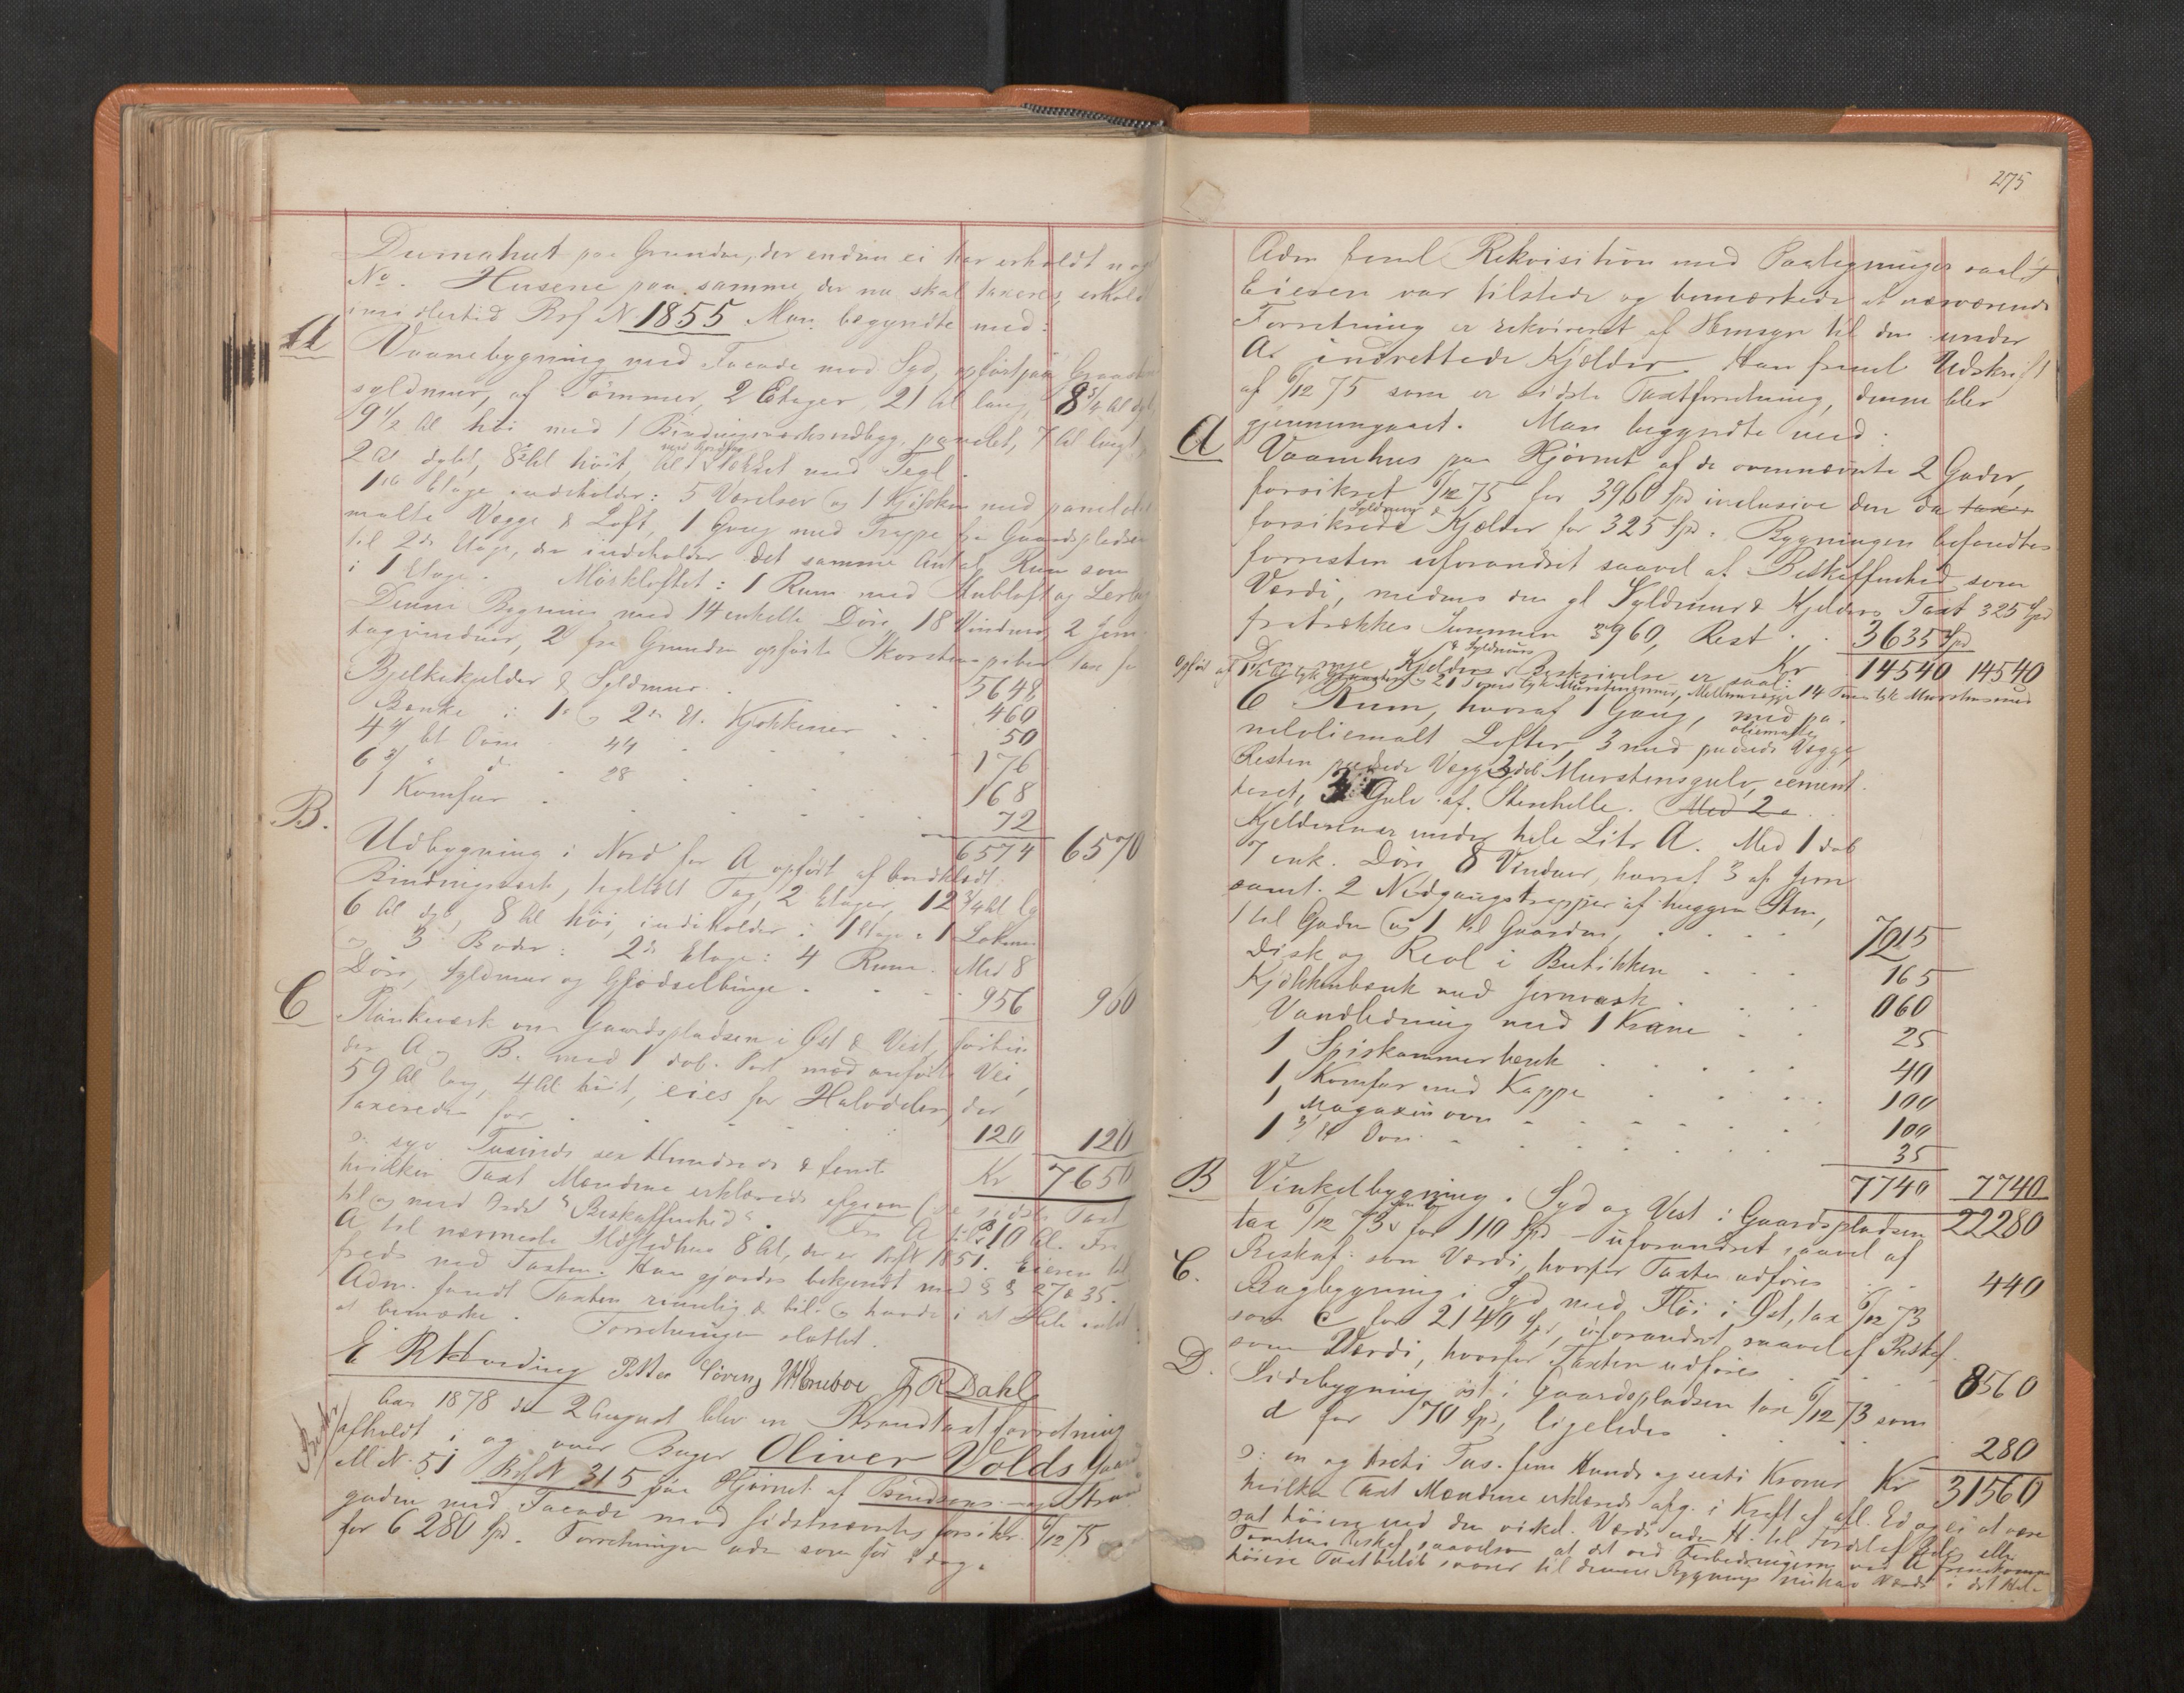 Dumahut paa Grunden, der endnu ei har erholdt noget
No. Husene paa samme, der nu skal taxeres, erholdt
imidlertid Brf N 1855 Man begyndte med:
A Vaanebygning med Facade mod Syd, opført paa Graasten
syldmur, af Tømmer, 2 Etager, 21 Al lang, 8 3/4 Al dyb,
9 1/2 Al høi med 1 Bindingsværksudbygg, panelet, 7 Al langt,
2 Al dybt, 8 Al høit, Alt tækket med Tegl.
1ste Etage indeholder: 5 Værelser og 1 Kjøkken med panelede
malte Vægge & Loft, 1 Gang med Trappe fra Gaardspladsen
til 2den Etage, der indeholder det samme Antal Rum som
i 1 Etage. Mørkloftet: 1 Rum med Stubloft og Lerlag
Denne Bygning med 14 enkelte Døre, 18 Vinduer, 2 Jern
tagvinduer, 2 fra Grunden opførte Skorstenspiber tax for
5648
Bjelkekjelder & Syldmur . . 460
Bænke i 1ste og 2den Et. Kjøkkener . . 50
4 Et Ovne 44 . . 176
6 " d. 28 . . 168
1 Komfur . . . . 72
6574 6570
B. Udbygning i Nord for A opført af bordklædt
Bindingsværk, tegltækt Tag, 2 Etager, 12 3/4 Al lg
6 Al dyb, 8 Al høi, indeholder i 1 Etage: 1 Lokum
og 3 Boder: 2den Etage: 4 Rum. Med 8
Døre, Syldmur og Gjødselbinge . . . 956 960
C Plankeværk om Gaardspladsen i Øst & Vest, forbin
der A og B. med 1 dob. Port mod anførte Vei,
59 Al lang, 4 Al høit, eies for Halvdelen, der
taxeredes for . . . . 120 120
ɔ: syv Tusinde sex Hundrede & femti Kr 7650
hvilken Taxt Mændene erklærede afgiven (se sidste Taxt
til og med Ordet "Beskaffenhed". Fra A til B 10 Al. Fra
A til nærmeste Træhus 8 Al, der er Brf N 1851. Eieren til
freds med Taxten. Han gjordes bekjendt med §§ 27 & 35.
Adm. fandt Taxten rimelig & bil. og havde i det Hele intet
at bemærke. Forretningen sluttet.
E R Hvoding Petter Sørens J R Dahl
Aar 1878 den 2 August blev en Brandtaxtforretning
afholdt i og over Bager Oliver Volds Gaard
M N. 51 Brf N 315 paa Hjørnet af Bendsens- og Strand
gaden med Facade mod sidstnævnte, forsikr. 6/12 75
for 6280 Spd. Forretningen udn som før i dag.
275
Adm freml Rekvisition med Paategninger saal.
Eieren var tilstede og bemærkede at nærværende
Forretning er rekvireret af Hensyn til den under
A. indrettede Kjælder. Han freml Udskrift
af 6/12 75 som er sidste Taxtforretning, denne blev
gjennemgaaet. Man begyndte med:
A Vaanehus paa Hjørnet af de ovennævnte 2 Gader,
forsikret 6/12 75 for 3960 Spd inclusive den da taxer
Syldmur &
forsikrede Kjælder for 325 Spd. Bygningen befandtes
forresten uforandret saavel af Beskaffenhed som
Værdi, medens den gl Syldmur & Kjelders Taxt 325 Spd
fratrækkes Summen 3960, Rest . . 3635 Spd
Kr 14540 14540
& Syldmurs
Den nye Kjelders Beskrivelse er saal:
6 Rum, hvoraf 1 Gang, med pa-
oliemalte
neloliemalt Lofter, 3 med pudsede Vægge,
Resten pudsede Vægge, 3 del Murstensgulv, cement
teret, 3 Gulv af Stenhelle. Med 2
Kjelderen er under hele Litr A. Med 1 dob
7 enk. Døre, 8 Vinduer, hvoraf 3 af Jern
samt 2 Nedgangstrapper af huggen Sten,
1 til Gaden og 1 til Gaarden, . . . 7215
Disk og Reol i Butikken . . . 165
Kjøkkenbænk med Jernvask . . . 060
Vandledning med 1 Krane . . 25
1 Spiskammerbænk . . . . 40
1 Komfur med Kappe . . . . 100
1 Magazinovn . . . . 100
1 Ovn . . . . 35
7740 7740
22280
B Vinkelbygning i Syd og Vest i Gaardspladsen
tax 6/12 73 for 110 Spd - uforandret saavel af
Beskaf: som Værdi, hvorfor Taxten udføres . . 440
C. Bagbygning i Syd med Fløi i Øst, tax 6/12 73
som C for 2140 Spd, uforandret saavel af Beskaf.
som Værdi, hvorfor Taxten udføres . . . 8560
D. Sidebygning øst i Gaardspladsen tax 6/12 73 som
d for 70 Spd, ligeledes . . . 280
ɔ: en og treti Tus. fem Hundr og sexti Kroner Kr 31560
hvilken Taxt Mændene erklærede afg. i Kraft af afl. Ed og ei at være
sat høiere end den virkel. Værdi
Taxtens Beskaf saavelsom at det ved Forbedringerne ved A fremkomne
høiere Taxtbeløb svarer til denne Bygnings virkel Værdi i det Hele